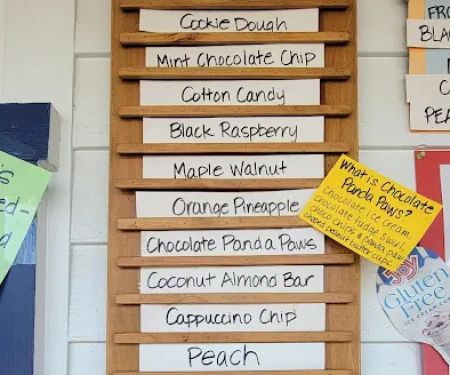 Cookie Dough
Mint Chocolate Chip
Cotton Candy
Black Raspberry
Maple Walnut
Orange Pineapple
Chocolate Panda Paws
Coconut Almond Bar
Cappuccino Chip
Peach
What is Chocolate
Panda Paws?
Chocolate Ice cream,
chocolate fudge swirl,
choco chips & panda paw
shaped peanut butter cups
JOY
Gluten
Free
ICE CREAM CON
FRO
BLAN
C
PEA
s
d